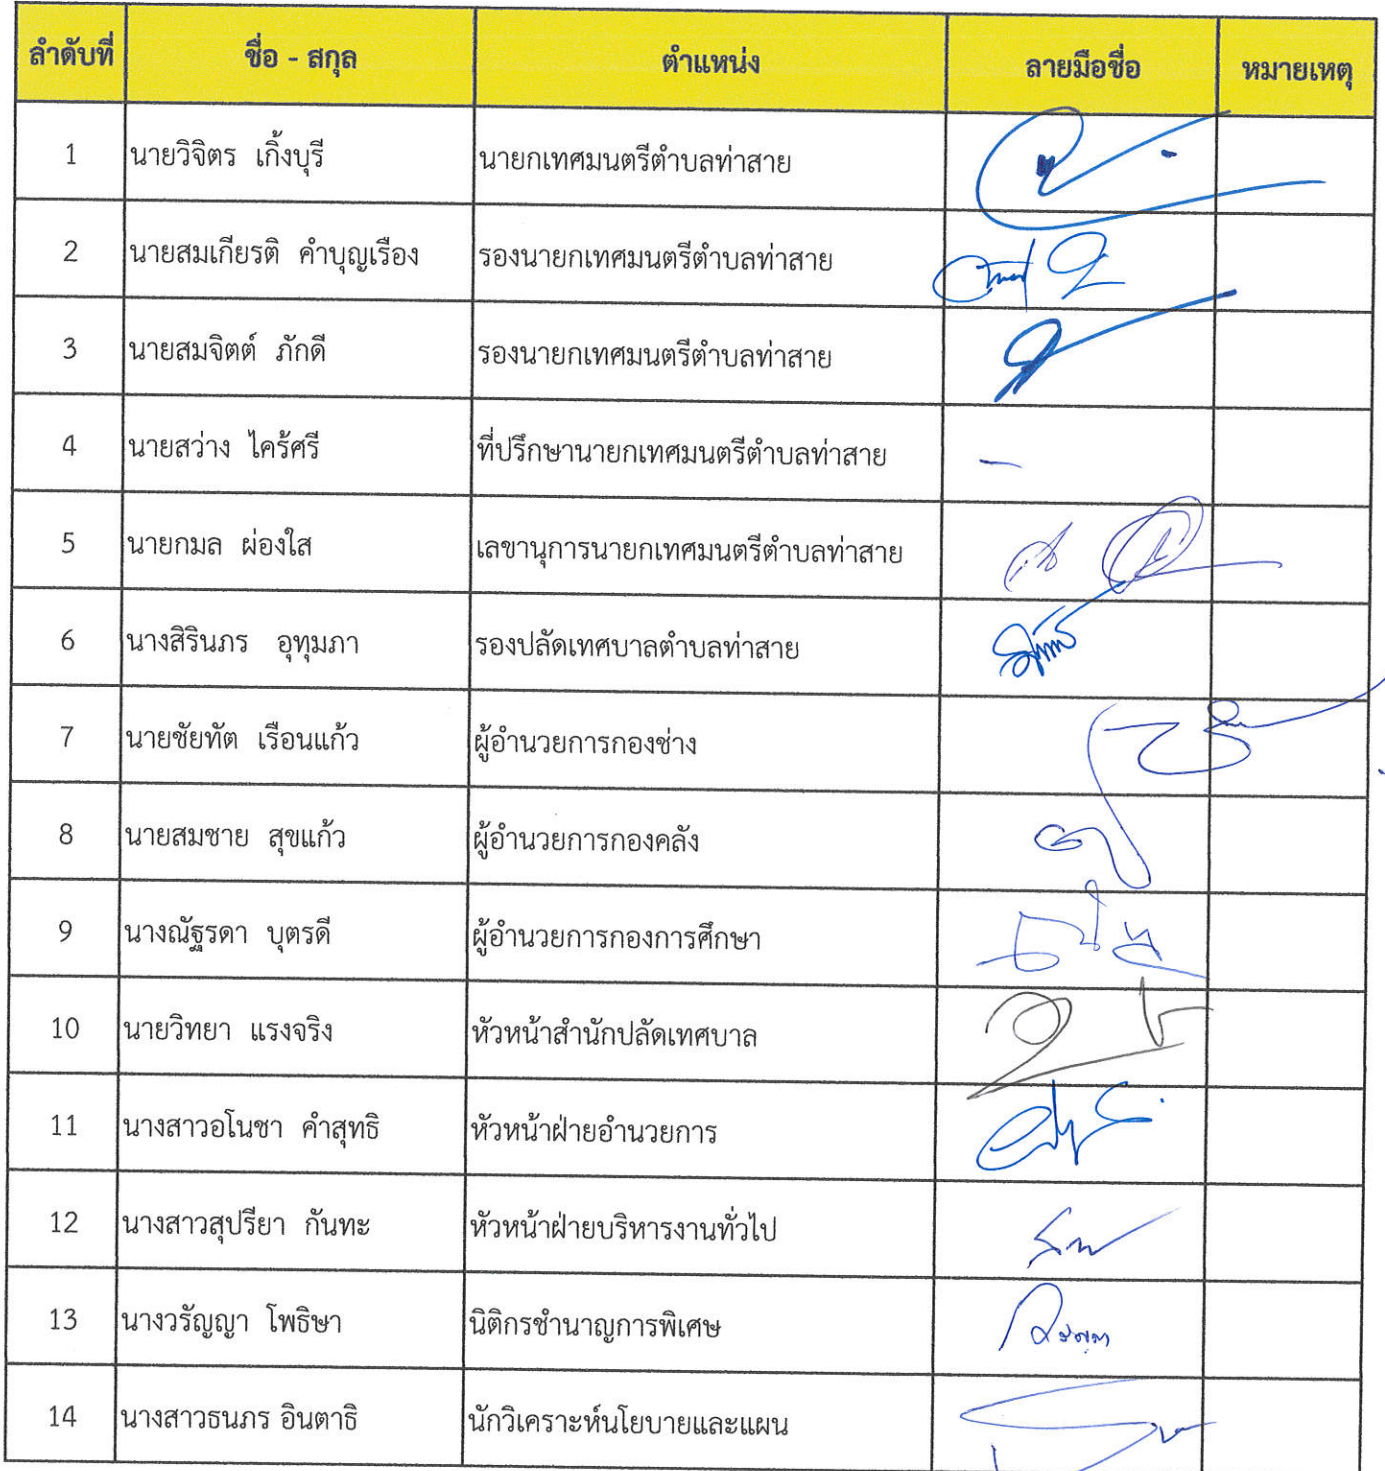 ลำดับที่ ชื่อ - สกุล ตำแหน่ง ลายมือชื่อ หมายเหตุ
1 นายวิจิตร เกิ้งบุรี นายกเทศมนตรีตำบลท่าสาย
2 นายสมเกียรติ คำบุญเรือง รองนายกเทศมนตรีตำบลท่าสาย
3 นายสมจิตต์ ภักดี รองนายกเทศมนตรีตำบลท่าสาย
4 นายสว่าง ไคร้ศรี ที่ปรึกษานายกเทศมนตรีตำบลท่าสาย -
5 นายกมล ผ่องใส เลขานุการนายกเทศมนตรีตำบลท่าสาย
6 นางสิรินภร อุทุมภา รองปลัดเทศบาลตำบลท่าสาย
7 นายชัยทัต เรือนแก้ว ผู้อำนวยการกองช่าง
8 นายสมชาย สุขแก้ว ผู้อำนวยการกองคลัง
9 นางณัฐรดา บุตรดี ผู้อำนวยการกองการศึกษา
10 นายวิทยา แรงจริง หัวหน้าสำนักปลัดเทศบาล
11 นางสาวอโนชา คำสุทธิ หัวหน้าฝ่ายอำนวยการ
12 นางสาวสุปรียา กันทะ หัวหน้าฝ่ายบริหารงานทั่วไป
13 นางวรัญญา โพธิษา นิติกรชำนาญการพิเศษ
14 นางสาวธนภร อินตาธิ นักวิเคราะห์นโยบายและแผน